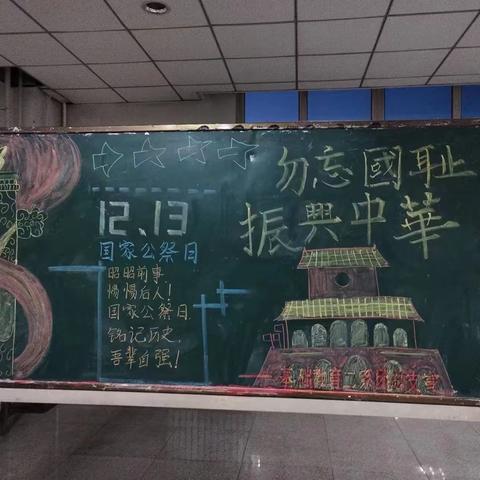 勿忘國耻
振興中華
12.13
国家公祭日
昭昭前事,
惕惕后人!
国家公祭日,
铭记历史,
吾辈自强!